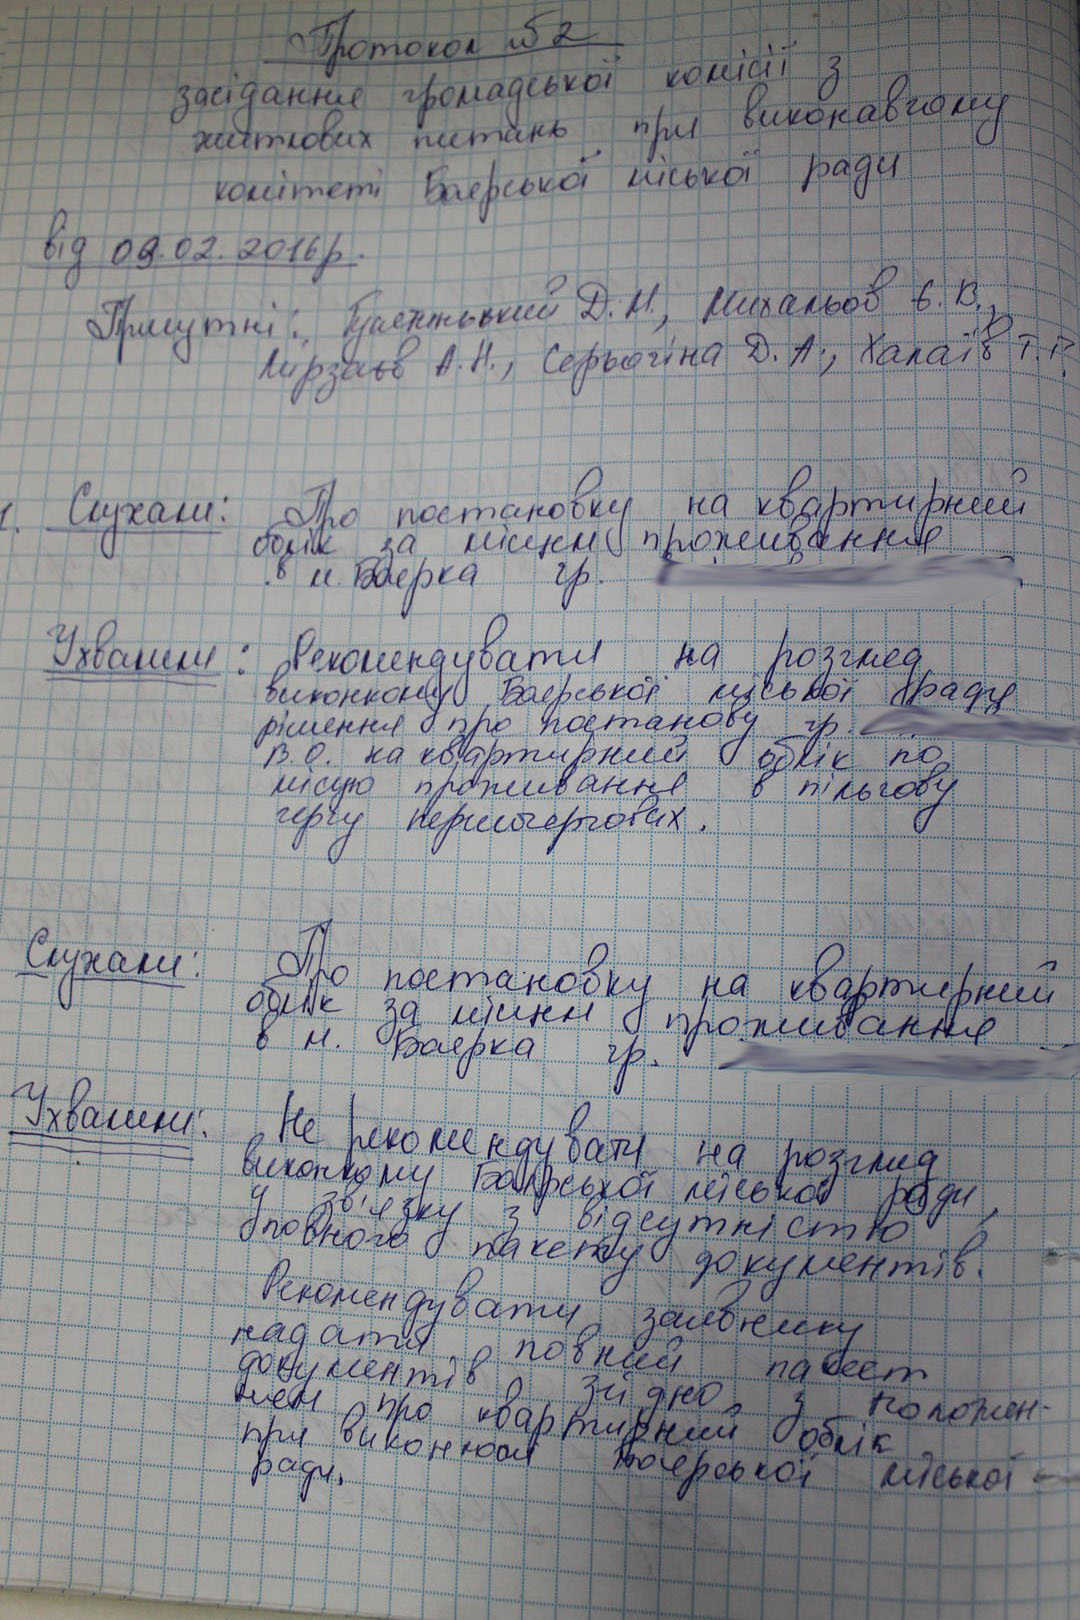 Протокол №2
засідання громадської комісії з
житлових питань при виконавчому
комітеті Боярської міської ради
від 09.02.2016р.
Присутні: Д.М., Михальов Є.В.,
Мірзаєв А.Н., Серьогіна Д.А., Халаїв Т.Г.
1. Слухали: Про постановку на квартирний
облік за місцем проживання
в м. Боярка гр.
Ухвалили: Рекомендувати на розгляд
виконкому Боярської міської ради
рішення про постанову гр.
В.О. на квартирний облік по
місцю проживання в пільгову
чергу першочергових.
Слухали: Про постановку на квартирний
облік за місцем проживання
в м. Боярка гр.
Ухвалили: Не рекомендувати на розгляд
виконкому Боярської міської ради,
у зв'язку з відсутністю
повного пакету документів.
Рекомендувати заявнику
надати повний пакет
документів згідно з положен-
ням про квартирний облік
при виконкомі Боярської міської
ради.